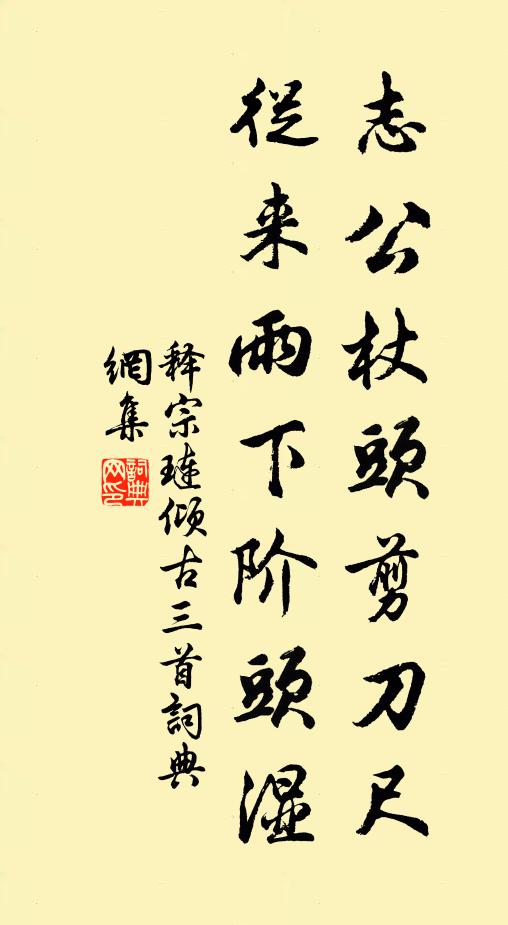 志公杖頭剪刀尺
從来雨下阶頭湿
释宗琏倾古三首詞典
網集
詞典网印